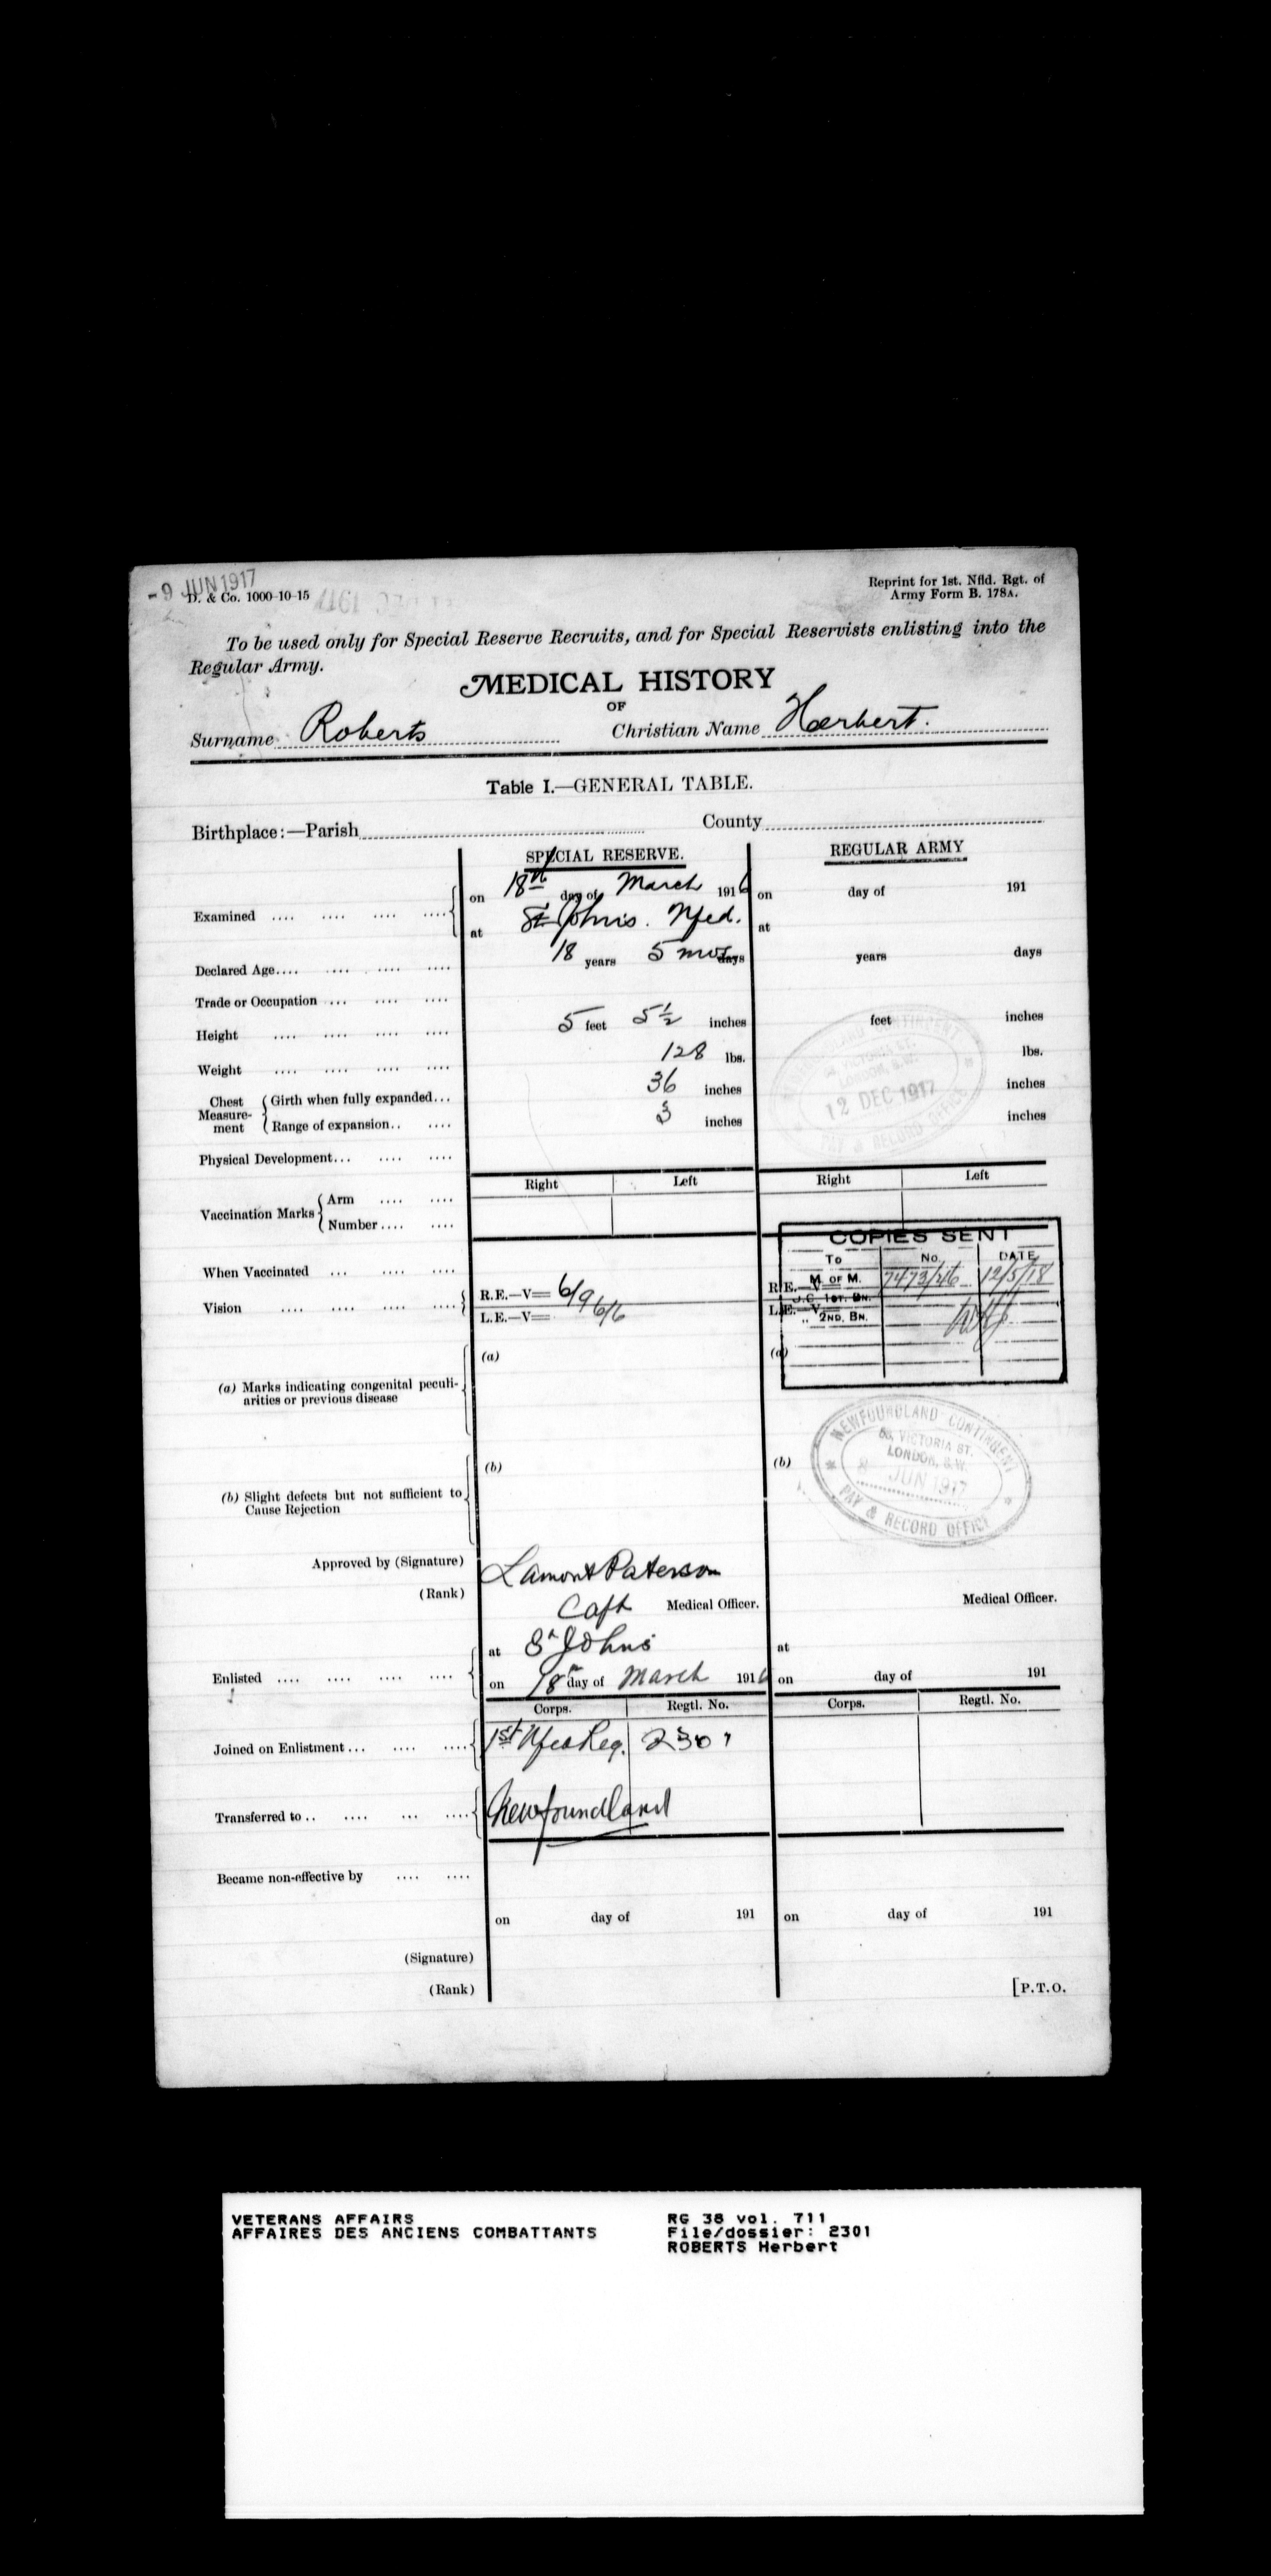 - 9 JUN 1917
D. & Co. 1000-10-15
Reprint for 1st. Nfld. Rgt. of
Army Form B. 178A.
To be used only for Special Reserve Recruits, and for Special Reservists enlisting into the
Regular Army.
MEDICAL HISTORY
OF
Surname Roberts Christian Name Herbert.
Table I.—GENERAL TABLE.
Birthplace:—Parish County
SPECIAL RESERVE. REGULAR ARMY
Examined .... .... .... .... on 18th day of March 1916 on day of 191
at St. John's. Nfld. at
Declared Age.... .... .... .... 18 years 5 mos days years days
Trade or Occupation ... .... ....
Height .... .... .... .... 5 feet 5 1/2 inches feet inches
Weight .... .... .... .... 128 lbs. lbs.
Chest Measure-ment Girth when fully expanded... 36 inches inches
Range of expansion.. .... 3 inches inches
Physical Development... .... ....
NEWFOUNDLAND CONTINGENT
58, VICTORIA ST.
LONDON, S.W.
12 DEC 1917
PAY & RECORD OFFICE
Right Left Right Left
Vaccination Marks Arm .... ....
Number .... ....
When Vaccinated ... .... ....
Vision .... .... .... .... R.E.—V= 6/9 R.E.—V=
L.E.—V= 6/6 L.E.—V=
COPIES SENT
To No. DATE
M. OF M. 7473/46 12/5/18
O.C. 1ST. BN.
,, 2ND. BN.
(a) Marks indicating congenital peculi-
arities or previous disease
(a) (a)
(b) Slight defects but not sufficient to
Cause Rejection
(b) (b)
NEWFOUNDLAND CONTINGENT
58, VICTORIA ST.
LONDON, S.W.
JUN 1917
PAY & RECORD OFFICE
Approved by (Signature) Lamont Paterson
(Rank) Capt Medical Officer. Medical Officer.
Enlisted .... .... .... .... at St Johns at
on 18th day of March 1916 on day of 191
Corps. Regtl. No. Corps. Regtl. No.
Joined on Enlistment... .... .... 1st Nfld Reg. 2301
Transferred to .. .... ... .... Newfoundland
Became non-effective by .... ....
on day of 191 on day of 191
(Signature)
(Rank)
[P.T.O.
VETERANS AFFAIRS RG 38 vol. 711
AFFAIRES DES ANCIENS COMBATTANTS File/dossier: 2301
ROBERTS Herbert